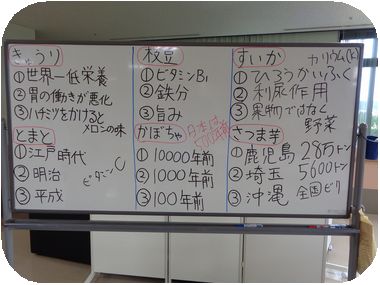 きゅうり
①世界一低栄養
②胃の働きが悪化
③ハチミツをかけると
メロンの味
枝豆
①ビタミンB1
②鉄分
③旨み
すいか
カリウム(K)
①ひろうかいふく
②利尿作用
③果物ではなく
野菜
とまと
①江戸時代
②明治
③平成
ビタミンC
かぼちゃ
日本に
①10000年前
②1000年前
③100年前
さつま芋
①鹿児島 28万トン
②埼玉 5600トン
③沖縄 全国ビリ